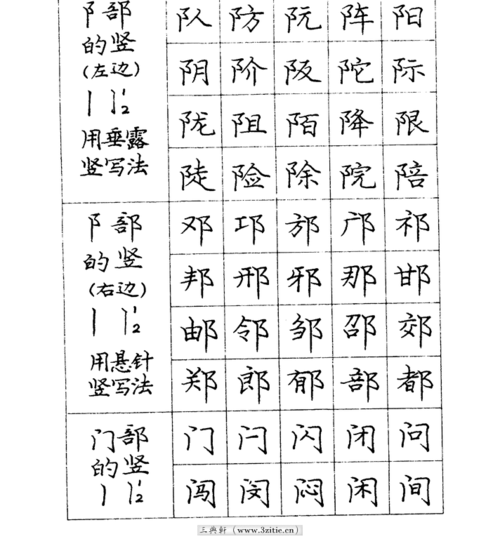 阝部
的竖
(左边)
用垂露
竖写法
队 防 阮 阵 阳
阴 阶 阪 陀 际
陇 阻 陌 降 限
陡 险 除 院 陪
阝部
的竖
(右边)
用悬针
竖写法
邓 邛 邡 邝 祁
邦 邢 邪 那 邯
邮 邻 邹 邵 郊
郑 郎 郁 部 都
门部
的竖
门 闩 闪 闭 问
闯 闵 闷 闲 间
三典轩（www.3zitie.cn）